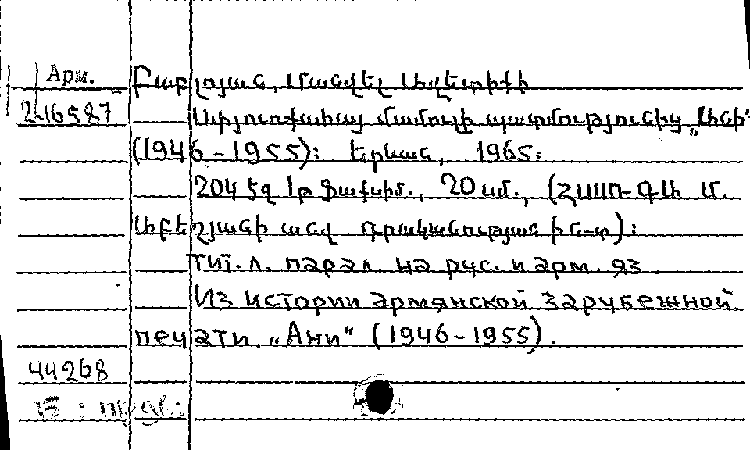 Арм.
Բաբլոյան, Մանվել Ավետիքի
2-16587
Սփյուռքահայ մամուլի պատմությունից „Անի"
(1946-1955): Երևան, 1965:
204 էջ 1 թ ֆաքսիմ., 20 սմ., (ՀՍՍՌ ԳԱ Մ.
Աբեղյանի անվ. գրականության ին-տ):
Тит. л. парал. на рус. и арм. яз.
Из истории армянской зарубежной
печати „Ани" (1946-1955).
44268